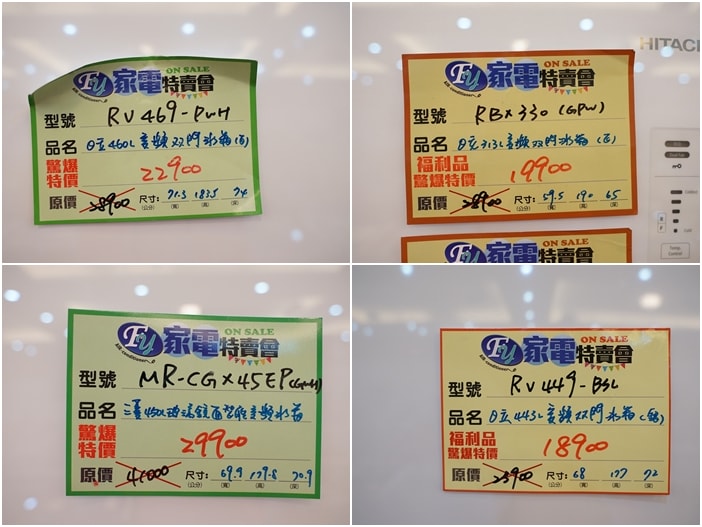 Fu 家電 ON SALE 特賣會
air conditioner
型號 RV469-PWH
品名 日立460L變頻双門冰箱(白)
驚爆特價 22900
原價 28900 尺寸: 71.3 183.5 74
(公分) (寬) (高) (深)
HITACHI
Fu 家電 ON SALE 特賣會
air conditioner
型號 RBX330 (GPW)
品名 日立313L變頻双門冰箱(白)
福利品
驚爆特價 19900
原價 28900 尺寸: 59.5 190 65
(公分) (寬) (高) (深)
Temp.
Control
Fu 家電 ON SALE 特賣會
Fu 家電 ON SALE 特賣會
air conditioner
型號 MR-CGX45EP(GMH)
品名 三菱450L玻璃鏡面智能變頻冰箱
驚爆特價 29900
原價 41000 尺寸: 69.9 179.8 70.9
(公分) (寬) (高) (深)
Fu 家電 ON SALE 特賣會
air conditioner
型號 RV449-BSL
品名 日立443L變頻双門冰箱(銀)
福利品
驚爆特價 18900
原價 23900 尺寸: 68 177 72
(公分) (寬) (高) (深)